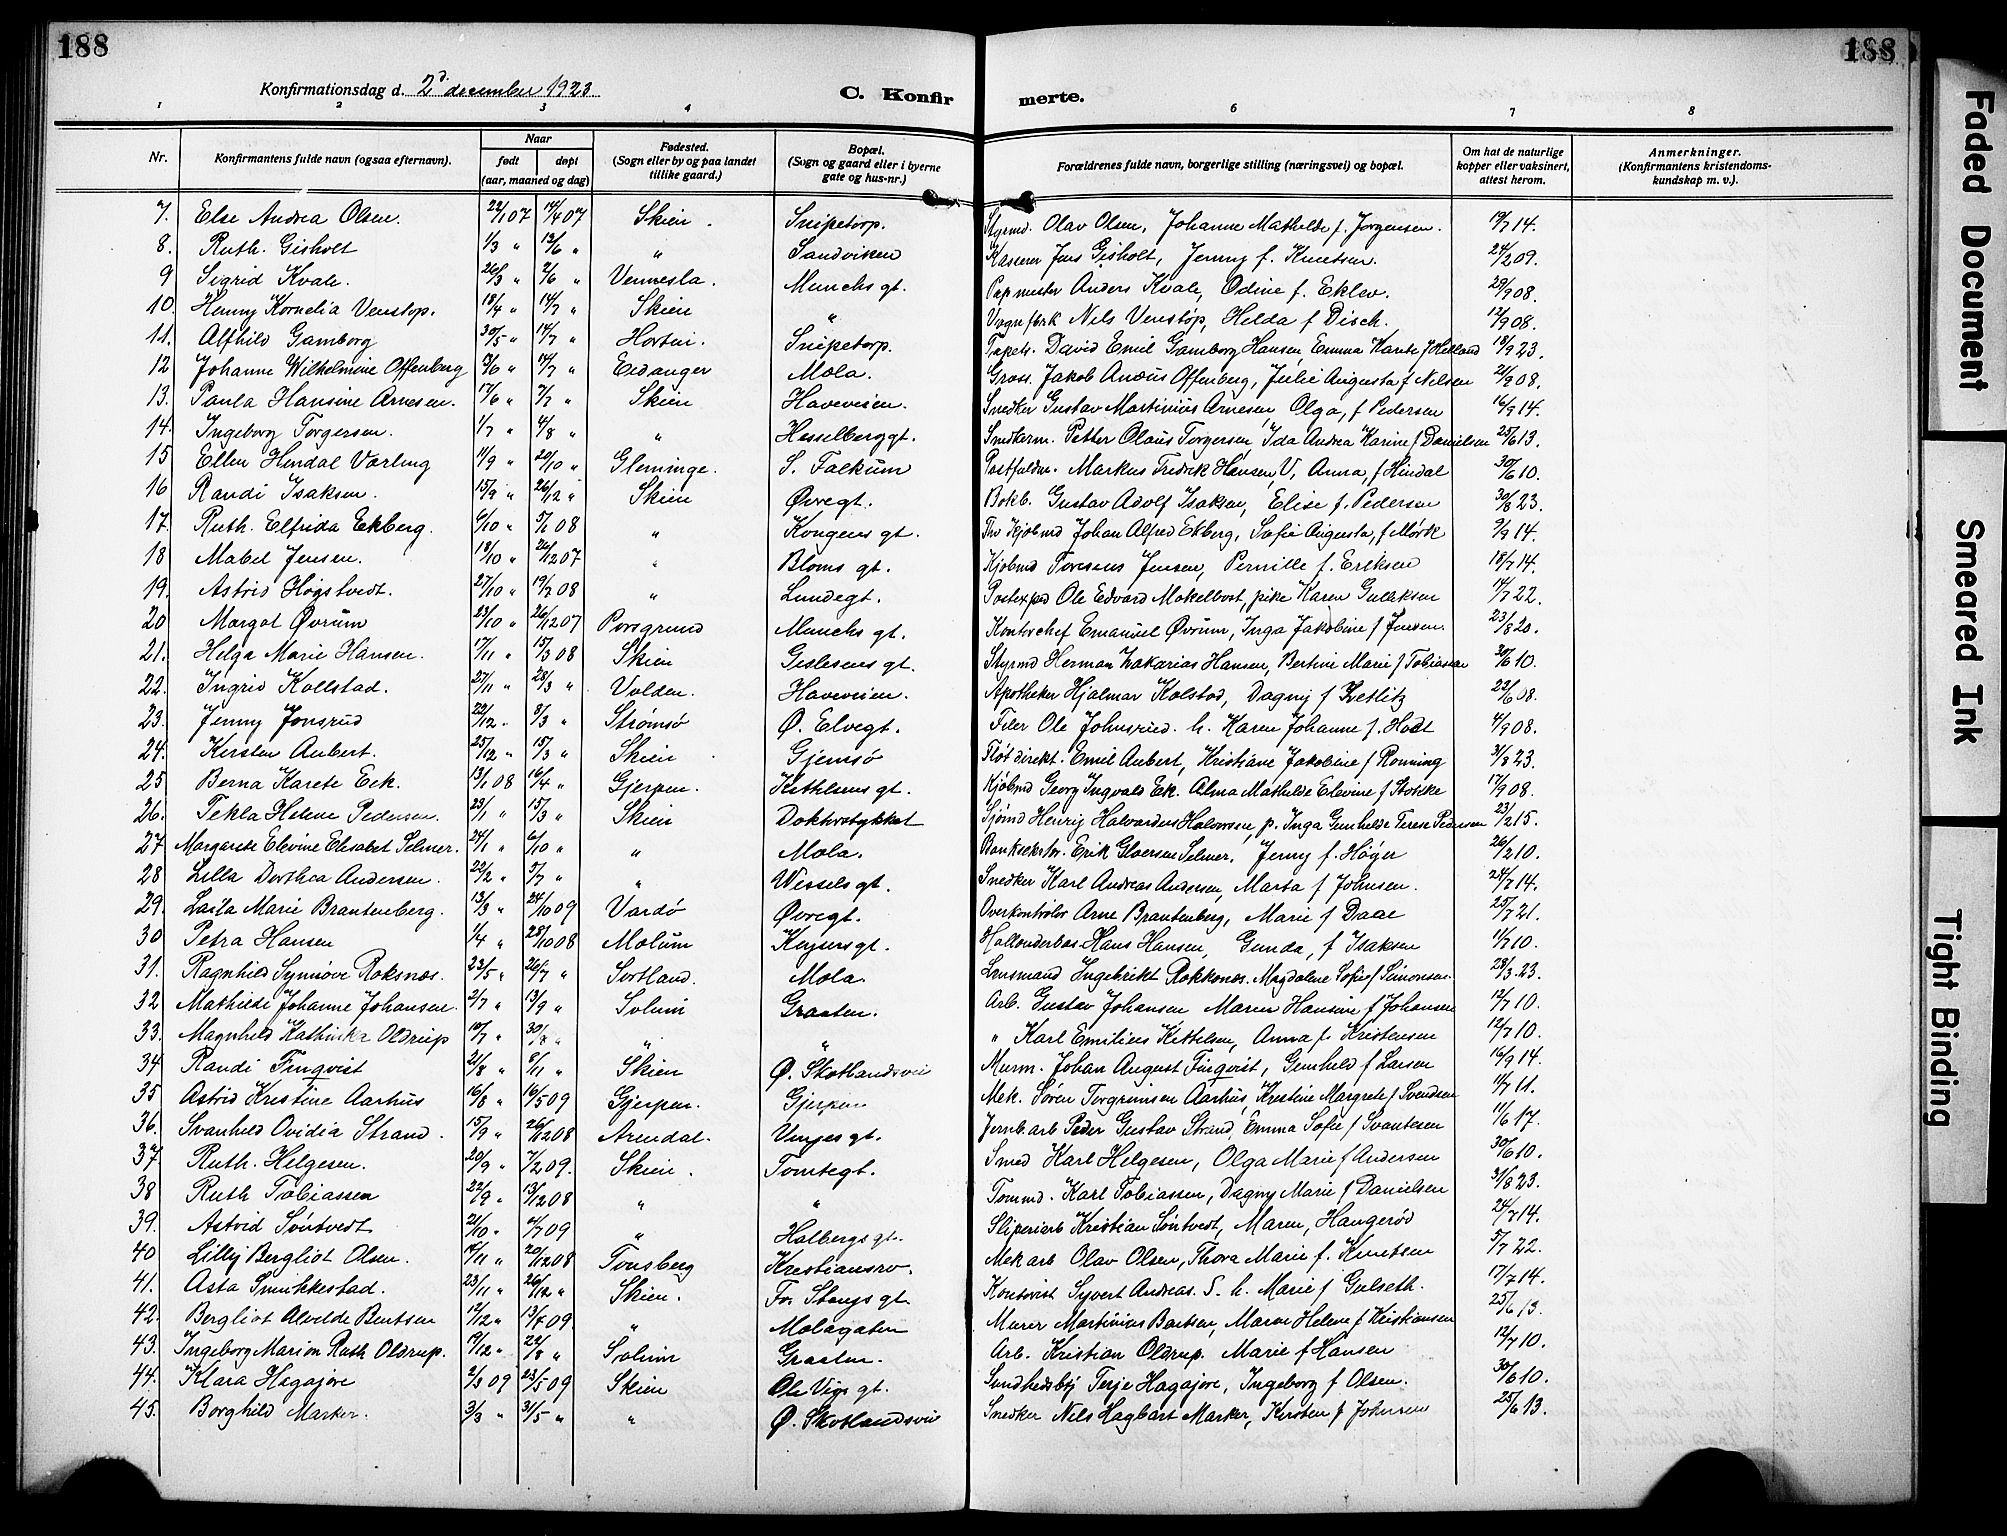 188
188
Konfirmationsdag d. 2d december 1923
C. Konfirmerte.
1 2 3 4 6 7 8
Nr. Konfirmantens fulde navn (ogsaa efternavn). Naar født døpt (aar, maaned og dag) Fødested. (Sogn eller by og paa landet tillike gaard.) Bopæl. (Sogn og gaard eller i byerne gate og hus-nr.) Forældrenes fulde navn, borgerlige stilling (næringsvei) og bopæl. Om hat de naturlige kopper eller vaksinert, attest herom. Anmerkninger. (Konfirmantens kristendomskundskap m. v.).
7. Else Andrea Olsen. 22/1 07 14/4 07 Skien. Snipetorp. Styrmd. Olav Olsen, Johanne Mathilde f. Jørgensen. 19/7 14.
8. Ruth Gisholt 1/3 " 13/6 " " Sandviken Kasserer Jens Gisholt, Jenny f. Knutsen. 24/2 09.
9 Sigrid Kvale. 26/3 " 2/6 " Vennesla. Munchs gt. Papmester Anders Kvale, Odine f. Eklev. 29/9 08.
10. Henny Kornelia Venstøp. 18/4 " 14/7 " Skien " Vognfbrk Nils Venstøp, Helda f Disch. 12/9 08.
11. Alfhild Gamborg 30/5 " 14/7 " Horten. Snipetorp. Tapets. David Emil Gamborg Hansen, Emma Karete f Hetland 18/9 23.
12 Johanne Wilhelmine Offenberg 7/6 " 14/7 " Eidanger Mæla. Gross. Jakob Anæus Offenberg, Julie Augusta f Nilsen 21/9 08.
13. Paula Hansine Arnesen. 17/6 " 7/7 " Skien Haveveien. Snedker Gustav Martinius Arnesen, Olga, f Pedersen 16/9 14.
14. Ingeborg Torgersen. 1/7 " 4/8 " " Hesselberggt. Smedkarm. Petter Olaus Torgersen, Ida Andrea Karine f Danielsen 25/6 13.
15 Ellen Hindal Værling 11/9 " 20/10 " Glemminge. S. Falkum Postfuldm. Markus Fredrik Hansen V, Anna, f Hindal 30/6 10.
16 Randi Isaksen. 15/9 " 26/12 " Skien Øvregt. Bokb. Gustav Adolf Isaksen, Elise f. Pedersen 30/8 23.
17. Ruth Elfrida Ekberg. 6/10 " 5/1 08 " Kongens gt. Thv Kjøbmd Johan Alfred Ekberg, Sofie Augusta, f Mørk 9/9 14.
18 Mabel Jensen. 18/10 " 26/12 07 " Bloms gt. Kjøbmd Jensen, Pernille f. Eriksen 18/7 14.
19. Astrid Høgstvedt. 27/10 " 19/7 08 " Lundegt. Postexped Ole Edvard Mækelbost, pike Karen Gulliksen 14/7 22.
20 Margot Øvrum 23/10 " 26/12 07 Porsgrund Munchs gt. Kontorchef Emanuel Øvrum, Inga Jakobine f Jensen. 23/8 20.
21. Helga Marie Hansen. 17/11 " 15/3 08 Skien Gislesens gt. Styrmd Herman Zakarias Hansen, Bertine Marie f Tobiassen 30/6 10.
22. Ingrid Kollstad. 27/11 " 28/3 " Volden. Haveveien. Apotheker Hjalmar Kolstad, Dagny f Zetlitz 22/6 08.
23. Jenny Jonsrud 22/12 " 8/3 " Strømsø Ø. Elvegt. Filer Ole Johnsrud. h. Karen Johanne f. Hoel 4/9 08.
24. Kirsten Aubert. 25/12 " 15/3 " Skien Gjemsø Fløtdirekt. Emil Aubert, Kristiane Jakobine f Rønning 31/8 23.
25 Berna Karete Eek. 13/1 08 16/4 " Gjerpen. Kittelens gt. Kjøbmd Georg Ingvald Ek. Alma Mathilde Elevine f Stoltke 17/9 08.
26. Tekla Helene Pedersen. 23/1 " 15/3 " Skien Doktorstykket Sjømd Henrig Halvardens Halvorsen, p. Inga Gunhilde Terese Pedersen 23/2 15.
27 Margarete Elevine Elisabet Selmer. 24/1 " 6/10 " " Mæla. Banksekrtr. Erik Gloersen Selmer, Jenny f. Höyer 26/2 10.
28 Lilla Dorthea Andersen. 22/2 " 5/7 " " Wessels gt. Snedker Karl Andreas Andersen, Marta f Johnsen. 24/7 14.
29. Laila Marie Brantenberg. 13/3 " 24/10 09 Vardø Øvregt. Overkontrolør Arne Brantenberg, Marie f Daae 25/7 21.
30 Petra Hansen 1/4 " 28/10 08 Molum Keysersgt. Hollenderbas Hans Hansen, Gunda, f Isaksen 11/7 10.
31. Ragnhild Synnøve Roksnæs. 23/5 " 26/7 " Sortland. Mæla Lensmand Ingebrikt Rokkonæs. Magdalene Sofie f Simonsen. 28/3.23.
32 Mathilde Johanne Johansen. 2/7 " 13/9 " Solum Graaten. Arb. Gustav Johansen Maren Hansine f Johansen 12/7 10.
33. Magnhild Kathinka Oldrup 10/7 " 30/8 " " " " Karl Emilius Kittelsen, Anna f. Kristensen 12/7 10.
34 Randi Finqvist 21/8 " 8/11 " Skien Ø. Skotlandsvei Murm. Johan August Finqvist, Gunhild f Larsen 16/9 14.
35 Astrid Kristine Aarhus 16/8 " 16/5 09 Gjerpen. Gjerpen Mek. Søren Torgrimsen Aarhus, Kristine Margrete f Svendsen 11/7 11.
36. Svanhild Ovidia Strand. 15/9 " 26/12 08 Arendal. Vinjes gt. Jernb.arb Peder Gustav Strand, Emma Sofie f Svantesen 11/6 17.
37 Ruth Helgesen. 20/9 " 7/2 09. Skien. Tomtegt. Smed Karl Helgesen, Olga Marie f Andersen 30/6 10.
38 Ruth Tobiassen 22/9 " 13/12 08 " " Tømmd. Karl Tobiassen, Dagny Marie f Danielsen 31/8 23.
39. Astrid Søntvedt 21/10 " 4/7 09 " Holbergs gt. Sliperiarb Kristian Søntvedt, Maren, Haugerød 24/7 14.
40 Lilly Bergliot Olsen. 14/11 " 20/12 08 Tønsberg Kristiansro. Mek arb Olav Olsen, Thora Marie f. Knutsen 5/7 22.
41. Asta Smukkestad. 23/11 " 26/12 " Skien. Fr. Stangs gt. Syvert Andreas. S. h. Marie f Gulseth. 17/7 14.
42. Bergliot Alvilde Bentsen 12/12 " 13/7 09 " Mælagaten Murer Martinius Bentsen, Maren Helene f Kristiansen 25/6 13.
43. Ingeborg Marion Ruth Oldrup. 19/12 " 22/8 " Solum Graaten. Arb. Kristian Oldrup. Marie f Hansen 12/7 10.
44. Klara Hagajore 2/3 09 23/5 09 Skien Ole Vigs gt. Sundhedsbtj Terje Hagajore, Ingeborg f Olsen. 30/6 10.
45. Borghild Marker. 3/3 " 31/5 " " Ø. Skotlandsvei Snedker Nils Hagbart Marker, Kirsten f Johnsen 25/6 13.
Faded Document
Smeared Ink
Tight Binding